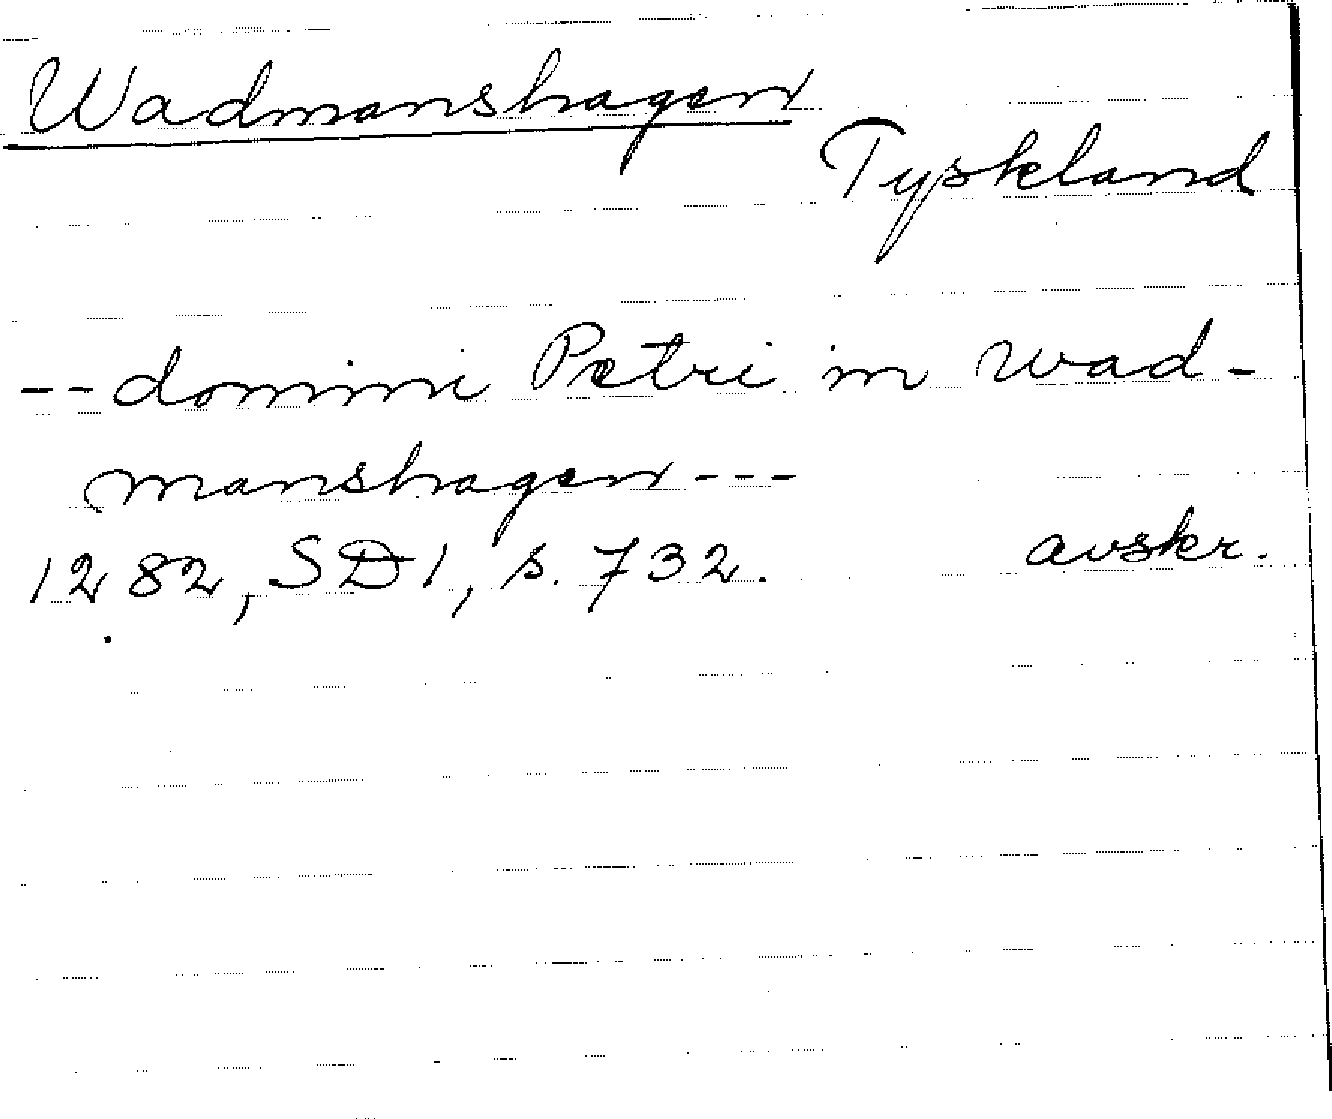 Wadmanshagen
Tyskland
-- domini Petri in wad-
manshagen ---
1282, SD1, s. 732. avskr.